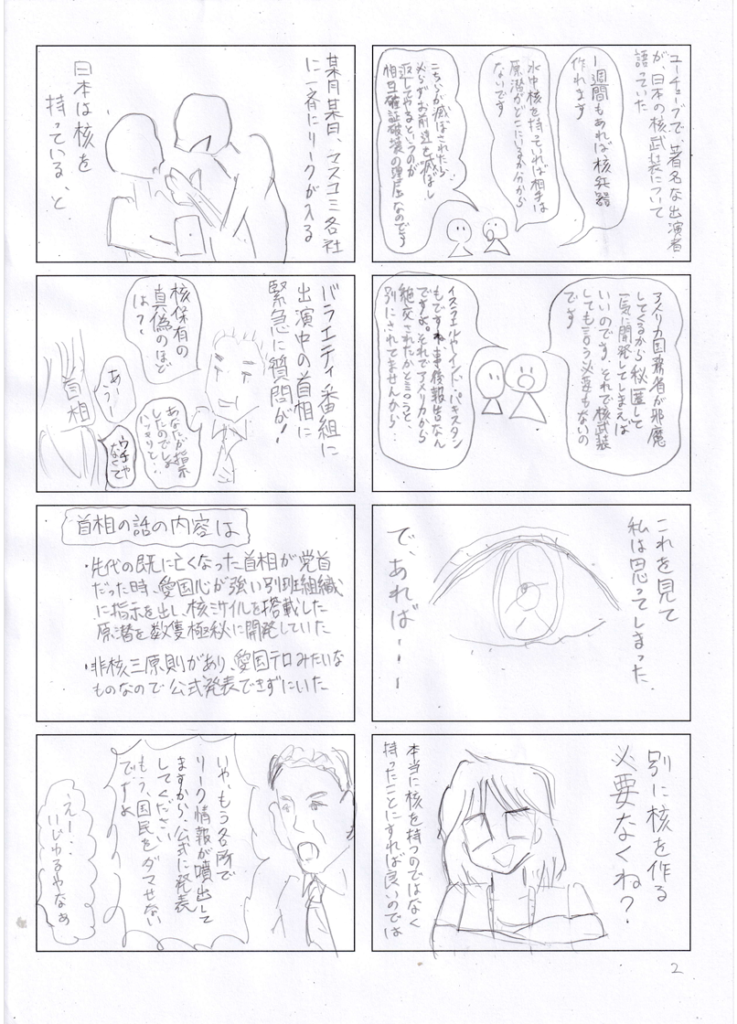 ユーチューブで、著名な出演者
が、日本の核武装について
語っていた
一週間もあれば核兵器
作れます
水中核を持っていれば相手は
原潜がどこにいるか分から
ないです
こちらが滅ぼされたら
必らずお前達を滅ぼし
返してやるというのが
相互確証破壊の理屈なのです
アメリカ国務省が邪魔
してくるから秘匿して
一気に開発してしまえば
いいのです、それで核武装
しても言う必要もないの
です
イスラエルやインド・パキスタン
もですね、事後報告なん
ですよ。それでアメリカから
絶交されたかと言うと、
別にされてませんから..
これを見て
私は思ってしまった
で、あれば・・・
別に核を作る
必要なくね?
本当に核を持つのではなく
持ったことにすれば良いのでは
某月某日、マスコミ各社
に一斉にリークが入る
日本は核を
持っている、と
バラエティ番組に
出演中の首相に
緊急に質問が!
核保有の
真偽のほど
は?!
首相
あうー
あなたが指示
したのでしょ
ハッキリと..
首相の話の内容は
・先代の既に亡くなった首相が党首
だった時、愛国心が強い別班組織
に指示を出し、核ミサイルを搭載した
原潜を数隻極秘に開発していた
・非核三原則があり、愛国テロみたいな
ものなので公式発表できずにいた
いや、もう各所で
リーク情報が噴出して
ますから、公式に発表
してください
もう、国民をダマせない
ですよ
えー..
いじゅるやなぁ
2